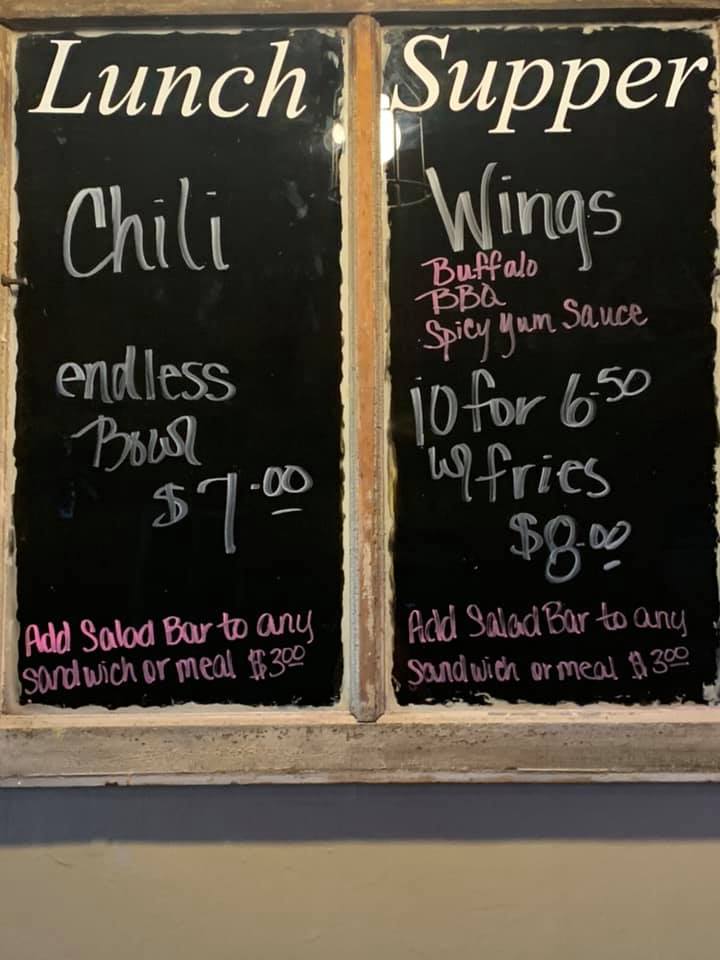 Lunch
Chili
endless
Bowl
$7.00
Add Salad Bar to any
sandwich or meal $3.00
Supper
Wings
Buffalo
BBQ
Spicy yum Sauce
10 for 6.50
w/ fries
$8.00
Add Salad Bar to any
sandwich or meal $3.00